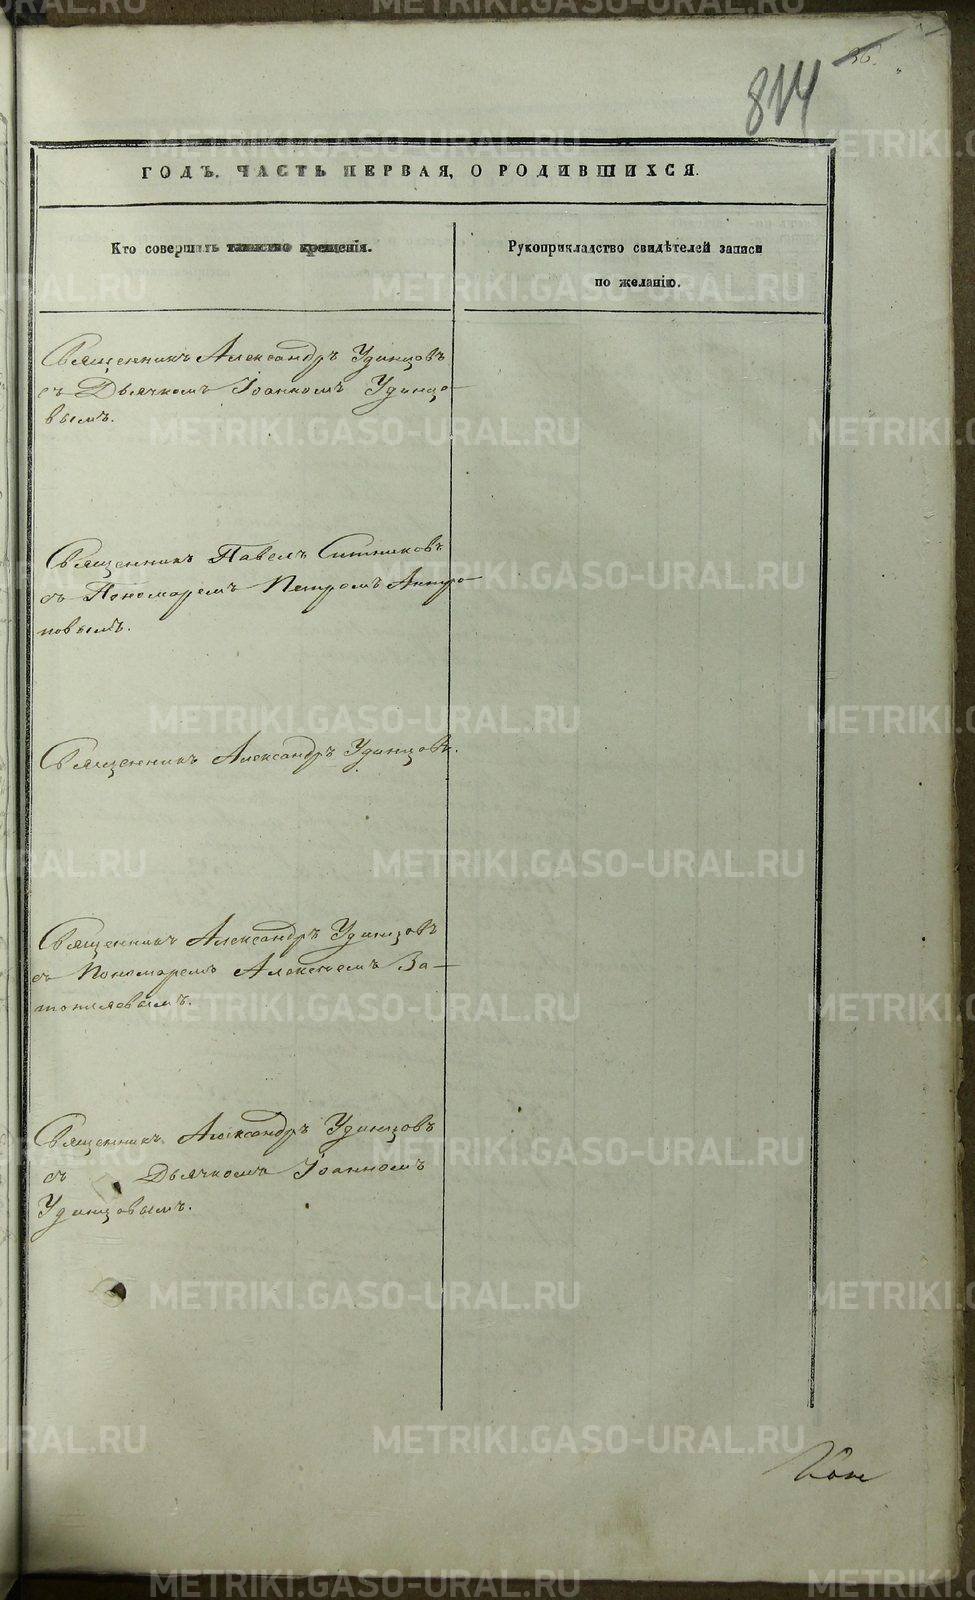 36.
814
ГОДЪ. ЧАСТЬ ПЕРВАЯ, О РОДИВШИХСЯ.
Кто совершилъ таинство крещенія.
Рукоприкладство свидѣтелей записи
по желанію.
Священникъ Александръ Удинцовъ
съ Дьячкомъ Іоанномъ Удинцо-
вымъ.
Священникъ Павелъ Ситниковъ
съ Пономаремъ Петромъ Антро-
повымъ.
Священникъ Александръ Удинцовъ.
Священникъ Александръ Удинцовъ
съ Пономаремъ Алексѣемъ За-
топляевымъ.
Священникъ Александръ Удинцовъ
съ Дьячкомъ Іоанномъ
Удинцовымъ.
METRIKI.GASO-URAL.RU